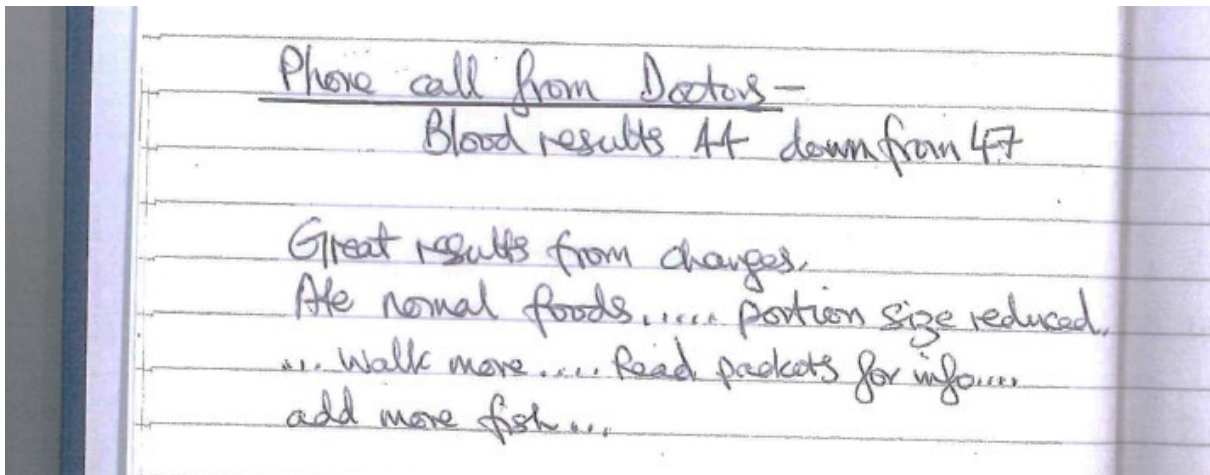 Phone call from Doctors -
Blood results 44 down from 47
Great results from changes.
Ate normal foods..... portion size reduced.
... Walk more.... Read packets for info....
add more fish...